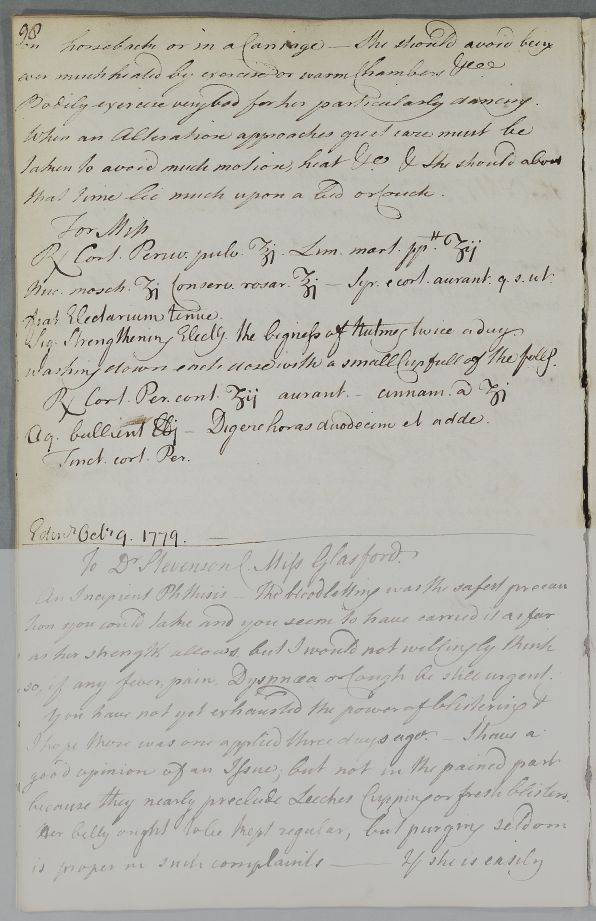 98
on horseback or in a Carriage — She should avoid being
over much heated by exercise or warm Chambers &c
Bodily exercise very bad for her particularly dancing.
When an Alteration approaches great care must be
taken to avoid much motion, heat &c & She should about
that time lie much upon a Bed or Couch.
For Miss
℞ Cort. Peruv. pulv. ℥j. Lim. mart. ppᵗ ʒij
Nuc. mosch. ʒj Conserv. rosar. ℥j — Syr. e cort. aurant. q. s. ut
fiat Electarium tenue.
Sig. Strengthening Electy. the bigness of Nutmeg twice a day
washing down each dose with a small Cupfull of the follg.
℞ Cort. Per. cont. ℥ij aurant. — cinnam. a ʒj
Aq. bullient ℔j — Digere horas duodecim et adde
Tinct. cort. Per.
Edinr. Octr. 9. 1779. —
To Dr Stevenson (Miss Glasford.
An Incipient Phthisis — The bloodletting was the safest precau
tion you could take and you seem to have carried it as far
as her strength allows, but I would not willingly think
so, if any fever, pain, Dyspnœa or Cough be still urgent.
You have not yet exhausted the power of blistering &
I hope there was one applied three days ago. — I have a
good opinion of an Issue, but not in the pained part
because they nearly preclude Leeches Cupping or fresh blisters.
Her belly ought to be kept regular, but purging seldom
is proper in such complaints — If she is easily